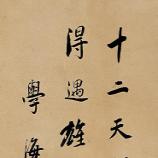 十二天
得遇雄
學海